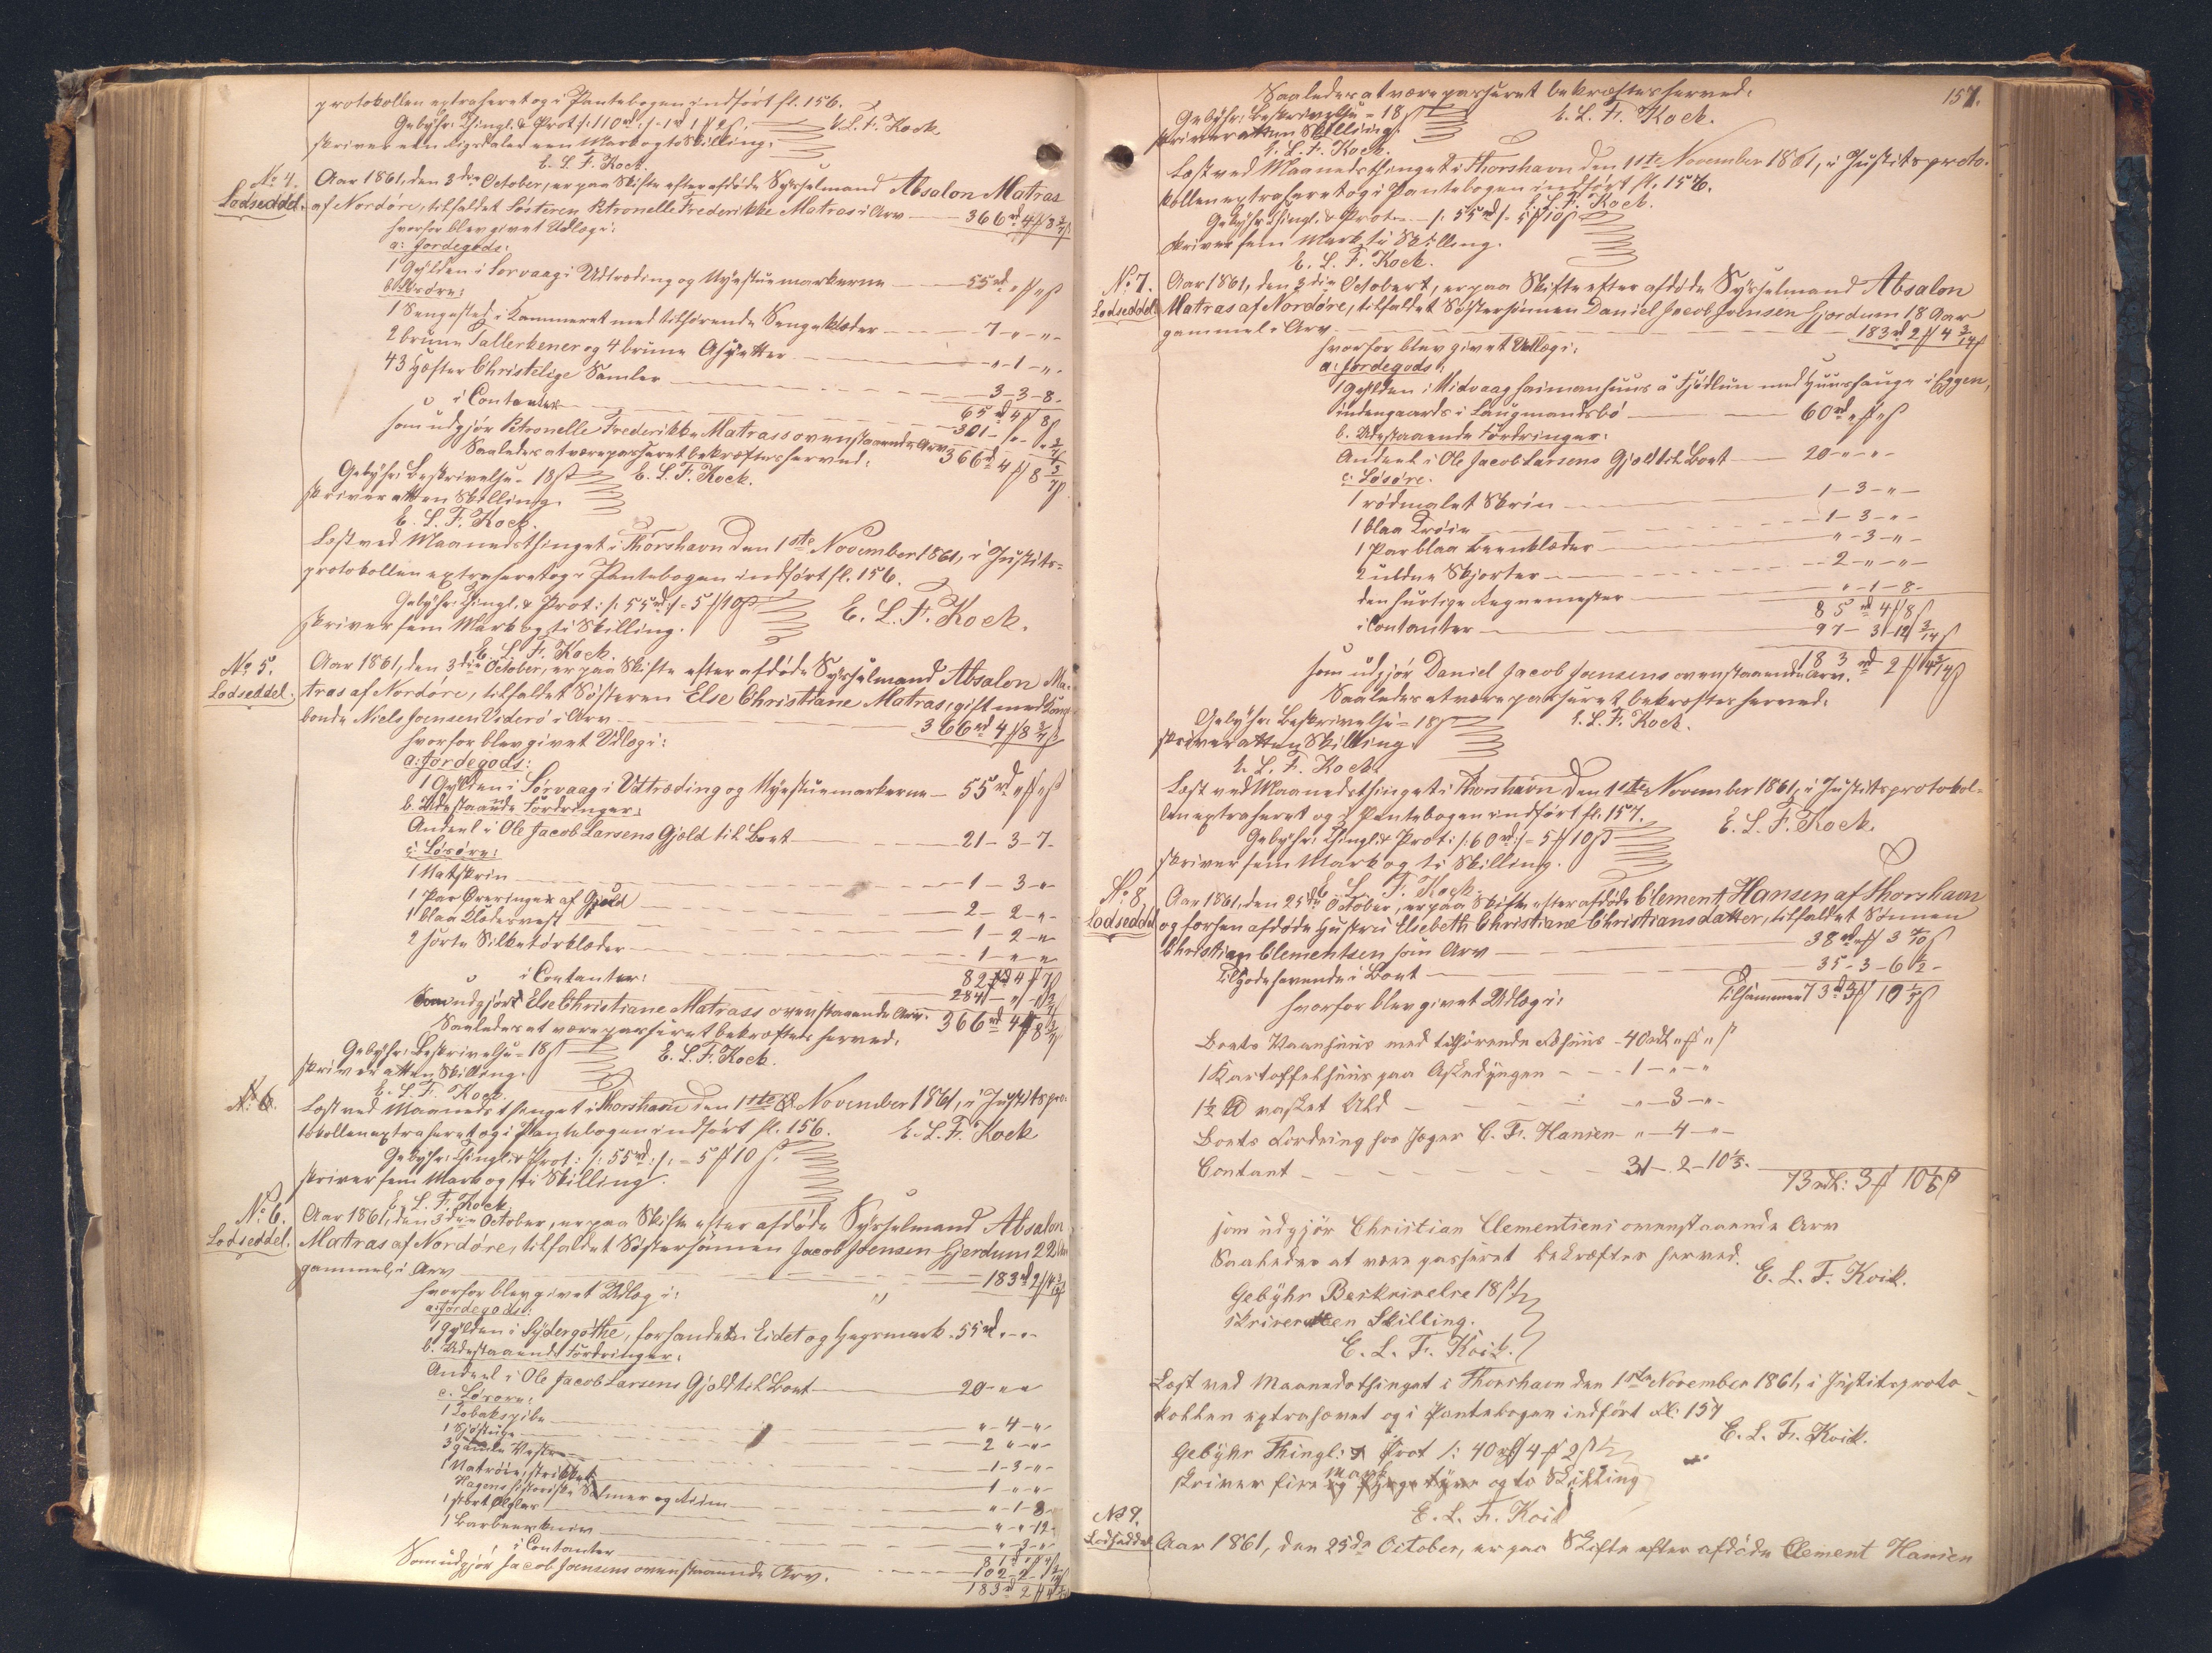 protokollen extraheret og i Pantebogen indført fl. 156.
Gebyhr: Thingl. & Prot: /: 110 rd :/ - 1 rd 1 ß 2 ß. E. L. F. Kock.
skriver een Rigsdaler een Mark og to Skilling.
E. L. F. Kock.
No 4. Aar 1861, den 3die October, er paa Skifte efter afdøde Sysselmand Absalon Matras
Lodseddel. af Nordøre, tilfaldet Søsteren Petronelle Frederikke Matras i Arv — 366 rd 4 ß 8 2/7 ß
hvorfor blev givet Udlæg i:
a: Jordegods:
1 Gylden i Sørvaag i Udtræding og Myrstuemarkerne — 55 rd " ß " ß
b. Løsøre:
1 Sengested i Kammeret med tilhørende Sengeklæder — 7 - " - " -
2 brune Tallerkener og 4 brune Assietter — " - 1 - " -
43 Hæfter Christelige Samler — 3 - 3 - 8 -
65 rd 4 ß 8 ß
i Contanter — 301 - " - " 2/7
som udgjør Petronelle Frederikke Matras's ovenstaaende Arv 366 rd 4 ß 8 2/7 ß.
Saaledes at være passeret bekræftes herved.
Gebyhr: Beskrivelse - 18 ß E. L. F. Kock.
skriver atten Skilling.
E. L. F. Kock.
Læst ved Maanedsthinget i Thorshavn den 1ste November 1861, i Justits-
protokollen extraheret og i Pantebogen indført fl. 156.
Gebyhr: Thingl. & Prot: /: 55 rd :/ - 5 ß 10 ß E. L. F. Kock.
skriver fem Mark og ti Skilling.
E. L. F. Kock.
No 5. Aar 1861, den 3die October, er paa Skifte efter afdøde Sysselmand Absalon Ma-
Lodseddel. tras af Nordøre, tilfaldet Søsteren Else Christiane Matras, gift med Konge-
bonde Niels Joensen Viderø i Arv — 366 rd 4 ß 8 2/7 ß
hvorfor blev givet Udlæg i:
a: Jordegods:
1 Gylden i Sørvaag i Udtræding og Myrstuemarkerne — 55 rd " ß " ß
b. Udestaaende Fordringer:
Andeel i Ole Jacob Larsens Gjæld til Boet — 21 - 3 - 7 -
c: Løsøre:
1 Matskrin — 1 - 3 - " -
1 Par Øreringer af Guld — 2 - 2 - " -
1 blaa Klædesvest — 1 - 2 - " -
2 sorte Silketørklæder — 1 - " - "
82 rd 4 ß 7 ß
i Contanter: 284 - " - 1 2/7
Som udgjør Else Christiane Matras's ovenstaaende Arv. 366 rd 4 ß 8 2/7 ß
Saaledes at være passeret bekræftes herved.
Gebyhr: Beskrivelse - 18 ß E. L. F. Kock.
skriver atten Skilling.
E. L. F. Kock.
No 6. Læst ved Maanedsthinget i Thorshavn den 1ste November 1861, i Justitspro-
tokollen extraheret og i Pantebogen indført fl. 156. E. L. F. Kock
Gebyhr: Thingl. & Prot: /: 55 rd :/ - 5 ß 10 ß.
skriver fem Mark og ti Skilling.
E. L. F. Kock.
No 6. Aar 1861, den 3die October, er paa Skifte efter afdøde Sysselmand Absalon
Lodseddel. Matras af Nordøre, tilfaldet Søstersønnen Jacob Joensen Gjerdum 22 Aar
gammel, i Arv — 183 rd 2 ß 4 2/14 ß
hvorfor blev givet Udlæg i:
a: Jordegods:
1 Gylden i Sydergøthe, forhandelen Eidet og Hegrmark. 55 rd " - "
b. Udestaaende Fordringer:
Andeel i Ole Jacob Larsens Gjæld til Boet — 20 - " "
c. Løsøre:
1 Tobakspibe — " - 4 - " -
1 Sjøstuge — 2 " - " -
3 gamle Veste — 1 - 3 - " -
1 Nattrøie, strikket — 1 - " - " -
Hagens historiske Salmer og Riim — " - 1 - 8 -
1 stort Ølglas — " - " 12 -
1 Barbeerkniv — " - 3 - " -
i Contanter 102 - 2
Som udgjør Jacob Joensens ovenstaaende Arv. 183 rd 2 ß 4
157.
Saaledes at være passeret bekræftes herved.
Gebyhr: Beskrivelse - 18 ß E. L. F. Kock.
skriver atten Skilling.
E. L. F. Kock.
Læst ved Maanedsthinget i Thorshavn den 1ste November 1861, i Justitsproto-
kollen extraheret og i Pantebogen indført fl. 156.
Gebyhr: Thingl. & Prot — /: 55 rd :/ - 5 ß 10 ß E. L. F. Kock.
skriver fem Mark ti Skilling.
E. L. F. Kock.
No 7. Aar 1861, den 3die October, er paa Skifte efter afdøde Sysselmand Absalon
Lodseddel. Matras af Nordøre, tilfaldet Søstersønnen Daniel Jacob Joensen Gjordum 18 Aar
gammel i Arv — 183 rd 2 ß 4 3/14 ß
hvorfor blev givet Udlæg i:
a: Jordegods:
1 Gylden i Midvaag haimanhuus a Fjødlun med Huushauge i Eggen,
indengaards i Laugmandsbø — 60 rd " ß " ß
b. Udestaaende Fordringer:
Andeel i Ole Jacob Larsens Gjæld til Boet — 20 - " - " -
c: Løsøre.
1 rødmalet Skrin — 1 - 3 - " -
1 blaa Trøie — 1 - 3 - " -
1 Par blaa Beenklæder — " - 3 - " -
2 uldne Skjorter — 2 - " - " -
den hurtige Regnemester — " - 1 - 8 -
85 rd 4 ß 8 ß
i Contanter — 97 - 3 - 12 3/14 ß
som udgjør Daniel Jacob Joensens ovenstaaende Arv. 183 rd 2 ß 4 3/14 ß
Saaledes at være passeret bekræftes herved.
Gebyhr: Beskrivelse - 18 ß E. L. F. Kock.
skriver atten Skilling.
E. L. F. Kock.
Læst ved Maanedsthinget i Thorshavn den 1ste November 1861, i Justitsprotokol-
len extraheret og i Pantebogen indført fl. 157. E. L. F. Kock.
Gebyhr: Thingl. & Prot: /: 60 rd :/ - 5 ß 10 ß
skriver fem Mark og ti Skilling.
E. L. F. Kock.
No 8. Aar 1861, den 25de October, er paa Skifte efter afdøde Clement Hansen af Thorshavn
Lodseddel og forhen afdøde Hustru Elsebeth Christiane Christiansdatter, tilfaldet Sønnen
Christian Clementsen som Arv — 38 rd " ß 3 7/10 ß
Tilgodehavende i Boet — 35 - 3 - 6 1/2 -
hvorfor blev givet Udlæg i: Tilsammen 73 rd 3 ß 10 1/5 ß
Boets Vaanhuus med tilhørende Kohuus - 40 rdl " ß " ß
1 Kartoffelhuus paa Askedyngen — 1 - " - "
1 1/2 ℔ vasket Uld — " - 3 - " -
Boets Fordring hos Jæger C. Fr. Hansen - " - 4 - " -
Contant — 31 - 2 - 10 1/5 -
73 rdl: 3 ß 10 1/5 ß
som udgjør Christian Clementsens ovenstaaende Arv
Saaledes at være passeret bekræftes herved.
E. L. F. Kock.
Gebyhr Beskrivelse 18 ß
skriver atten Skilling.
E. L. F. Kock.
Læst ved Maanedsthinget i Thorshavn den 1ste November 1861, i Justitsproto-
kollen extraheret og i Pantebogen indført Fl: 157
E. L. F. Kock.
Gebyhr Thingl: & Prot /: 40 rd 4 ß 2 ß
skriver fire Mark og to Skilling
E. L. F. Kock
No 9.
Lodseddel Aar 1861, den 25de October, er paa Skifte efter afdøde Clement Hansen